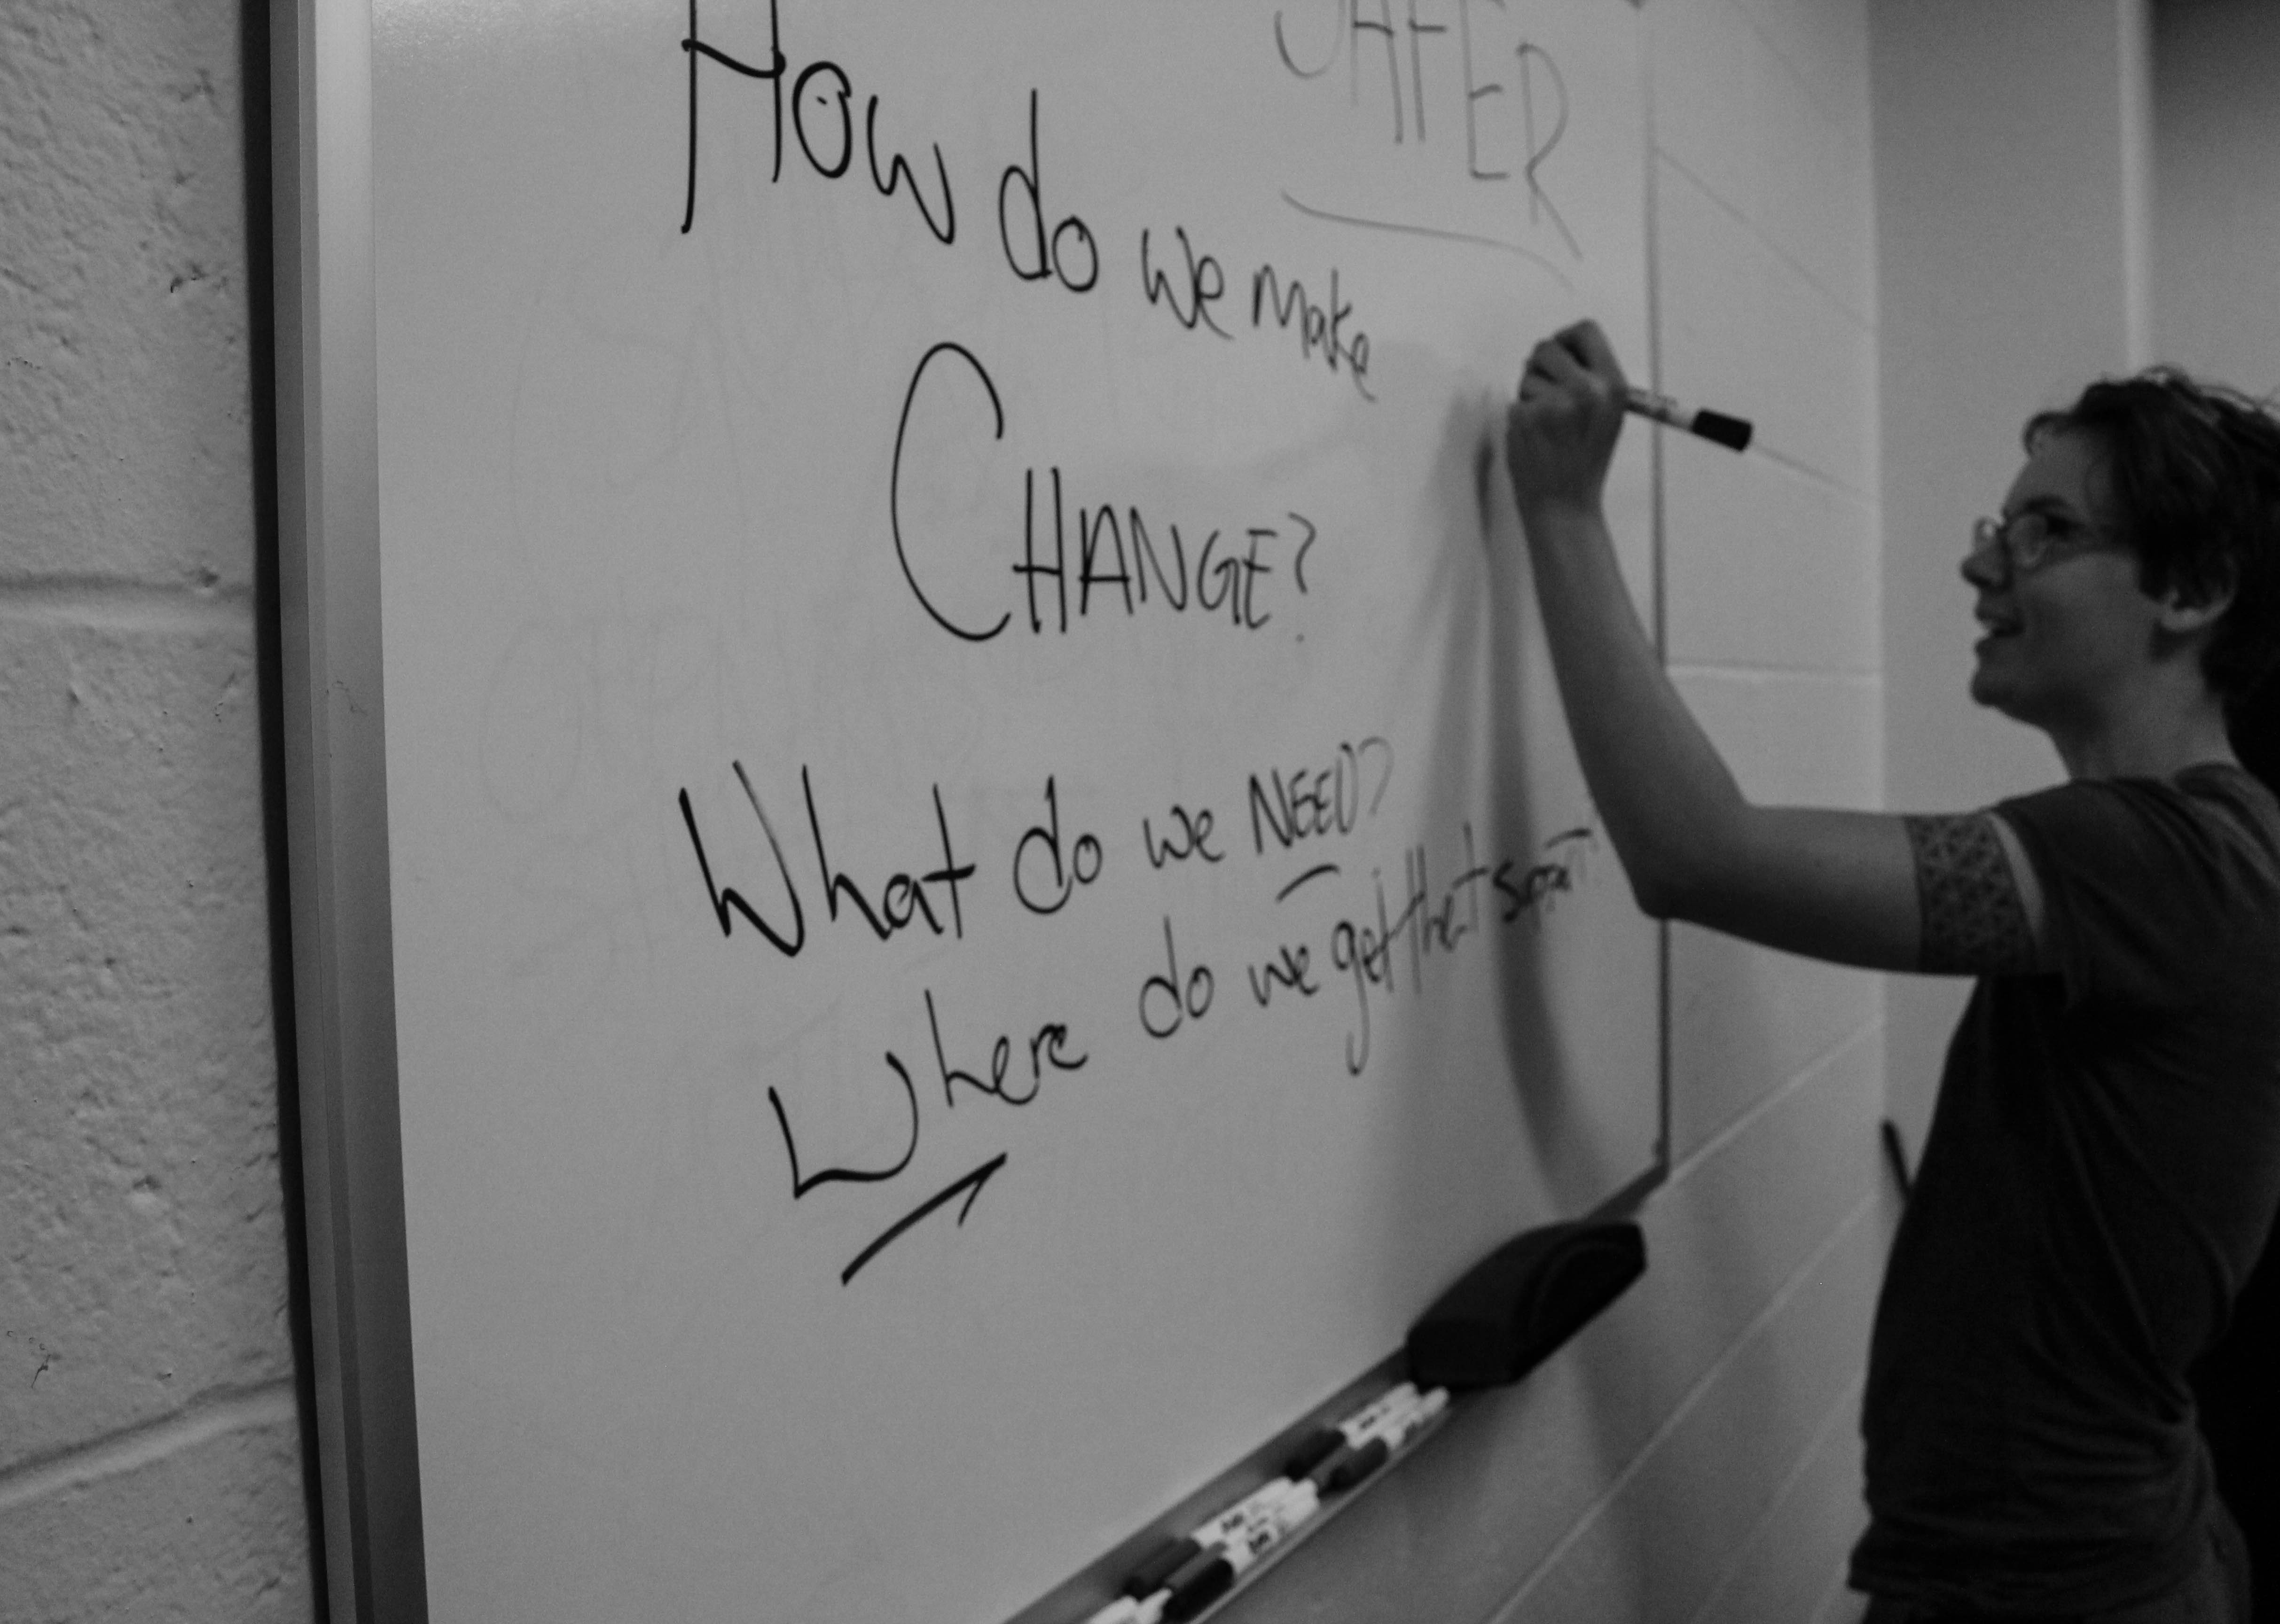 SAFER
How do we make
CHANGE?
What do we NEED?
Where do we get that